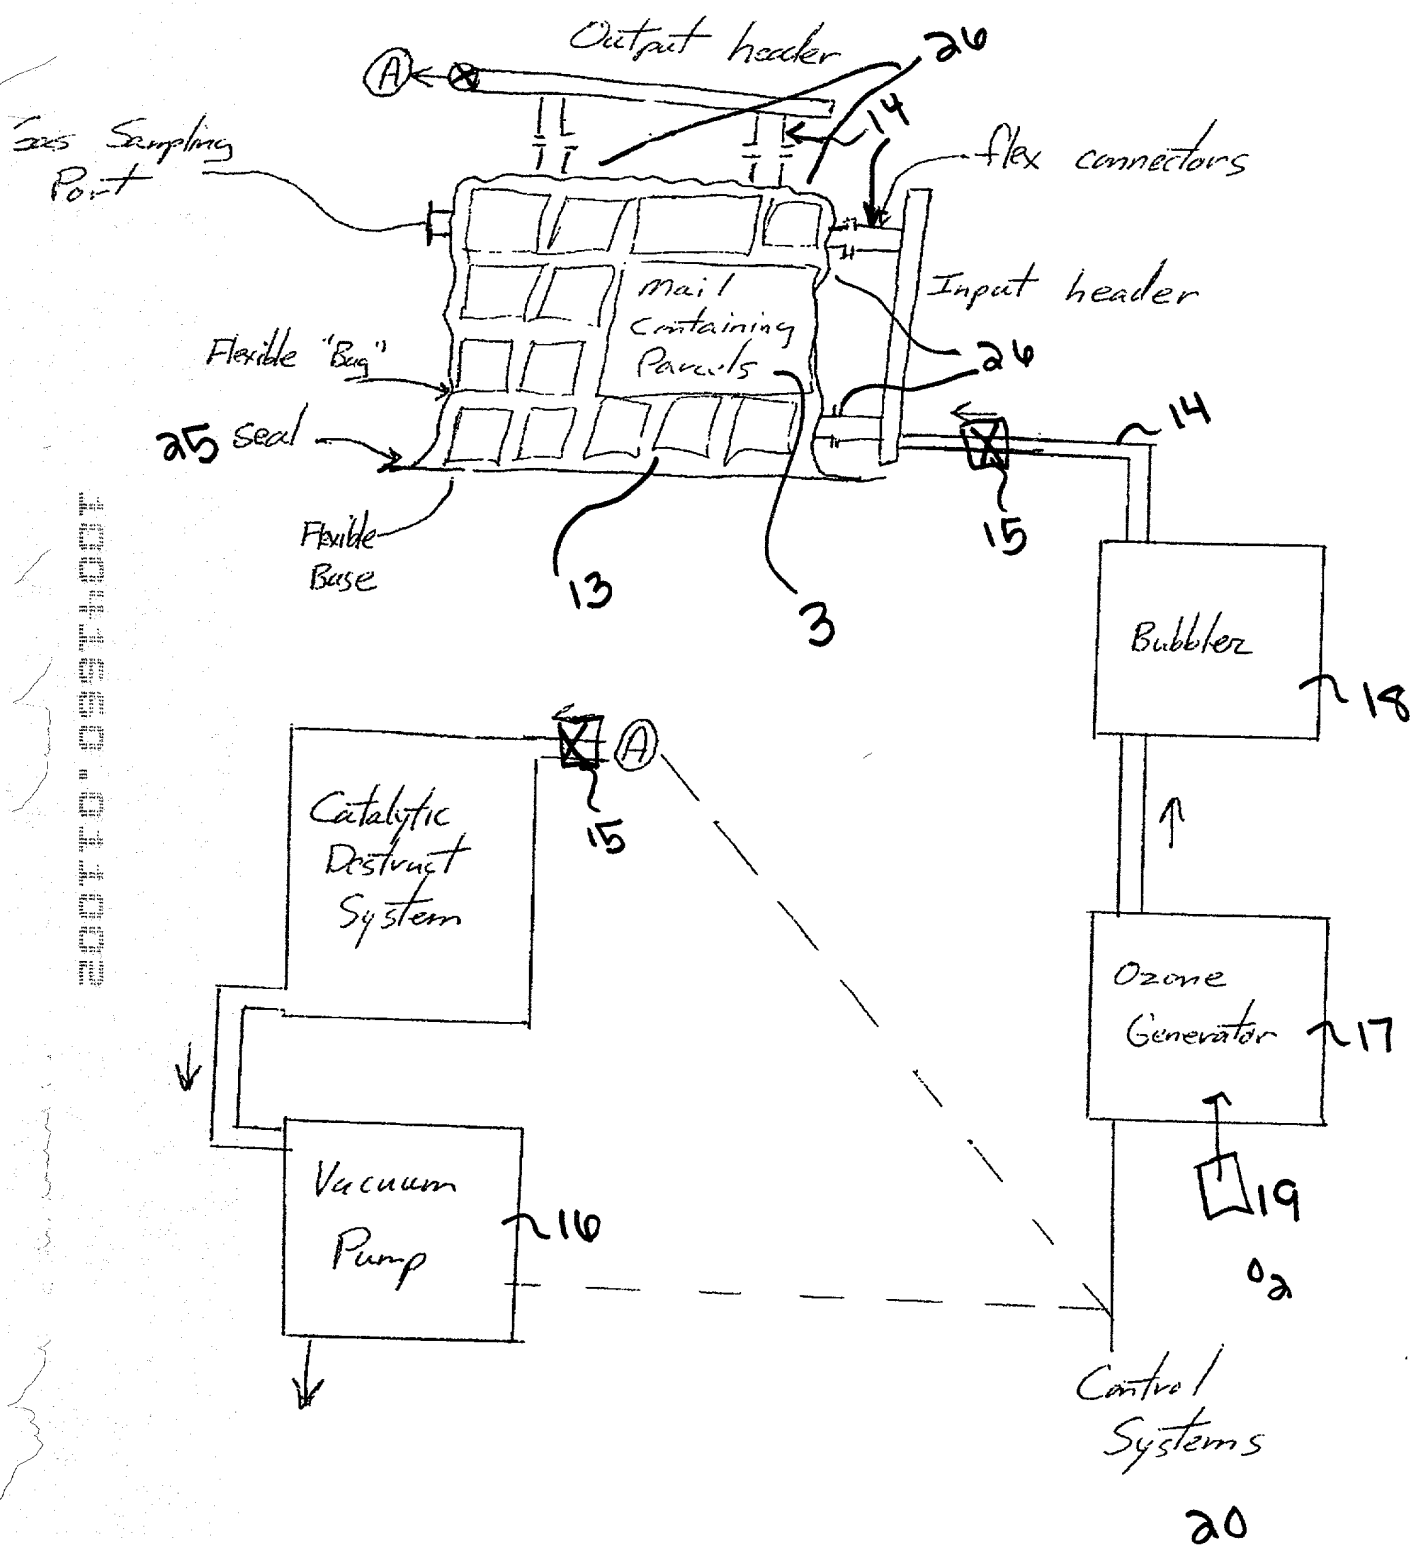 Output header
26
A
14
Gas Sampling
Port
flex connectors
Input header
Mail
Containing
Parcels
26
Flexible "Bag"
25 Seal
14
15
Flexible
Base
13
3
Bubbler
18
A
15
Catalytic
Destruct
System
Ozone
Generator
17
Vacuum
Pump
16
19
O2
Control
Systems
20
10041660.011002